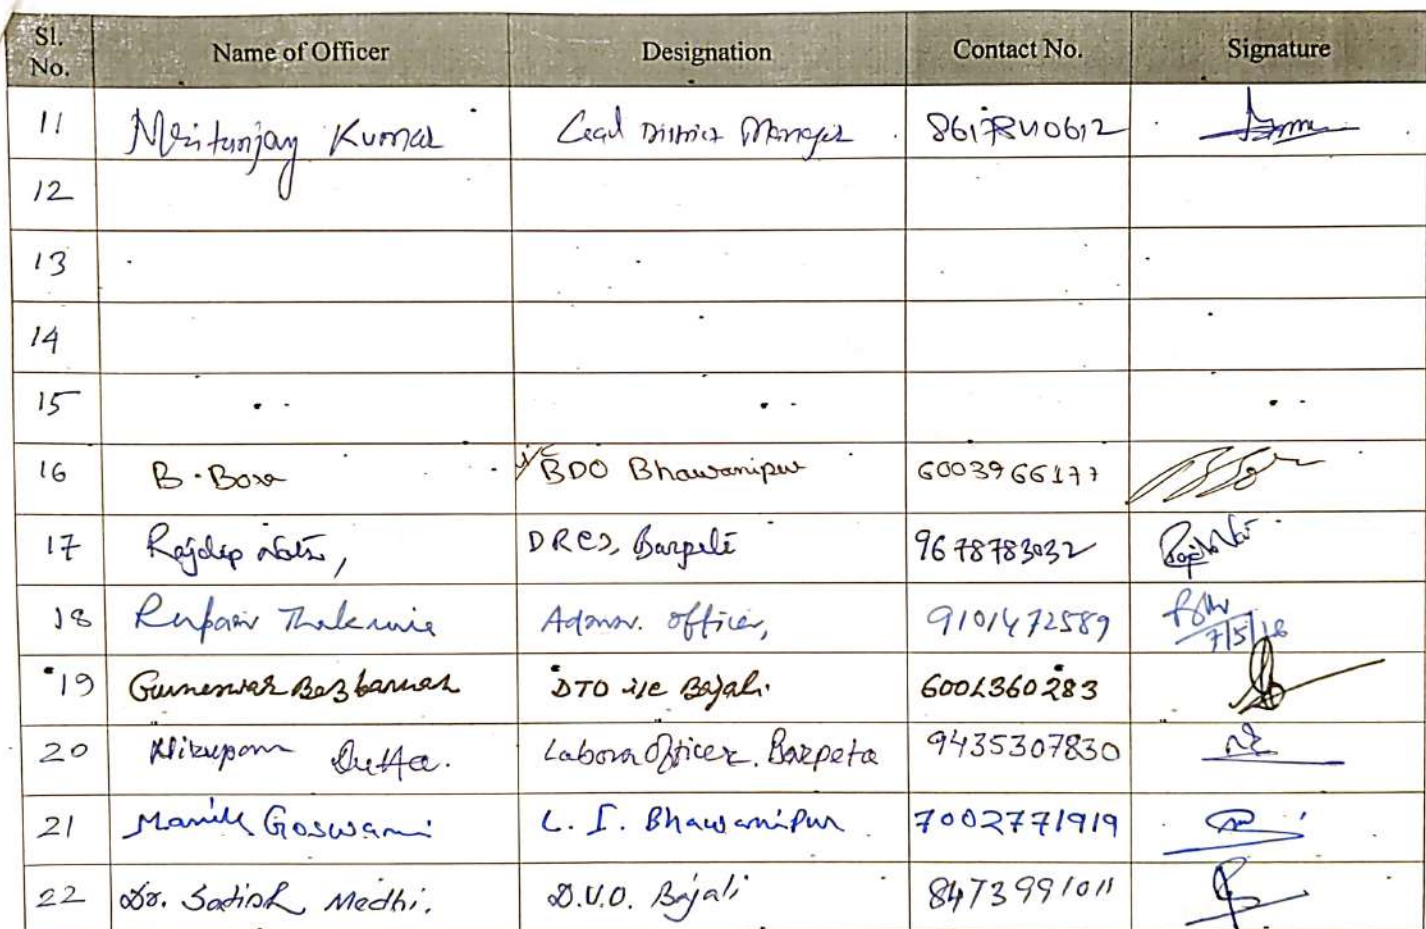 Sl. No. Name of Officer Designation Contact No. Signature
11 Mritunjay Kumar Lead District Manager 8617840612
12
13
14
15
16 B. Bora i/c BDO Bhawanipur 6003966177
17 Rajdip DRCS, 9678783032
18 Thakuria Admn. Officer, 9101472589 7/5/
19 Guneswar Bezbaruah DTO i/c Bajali. 6001360283
20 Nirupam Dutta. Labour Officer. Barpeta 9435307830
21 Manik Goswami L. I. Bhawanipur 7002771919
22 Dr. Satish Medhi. D.V.O. Bajali 8473991011